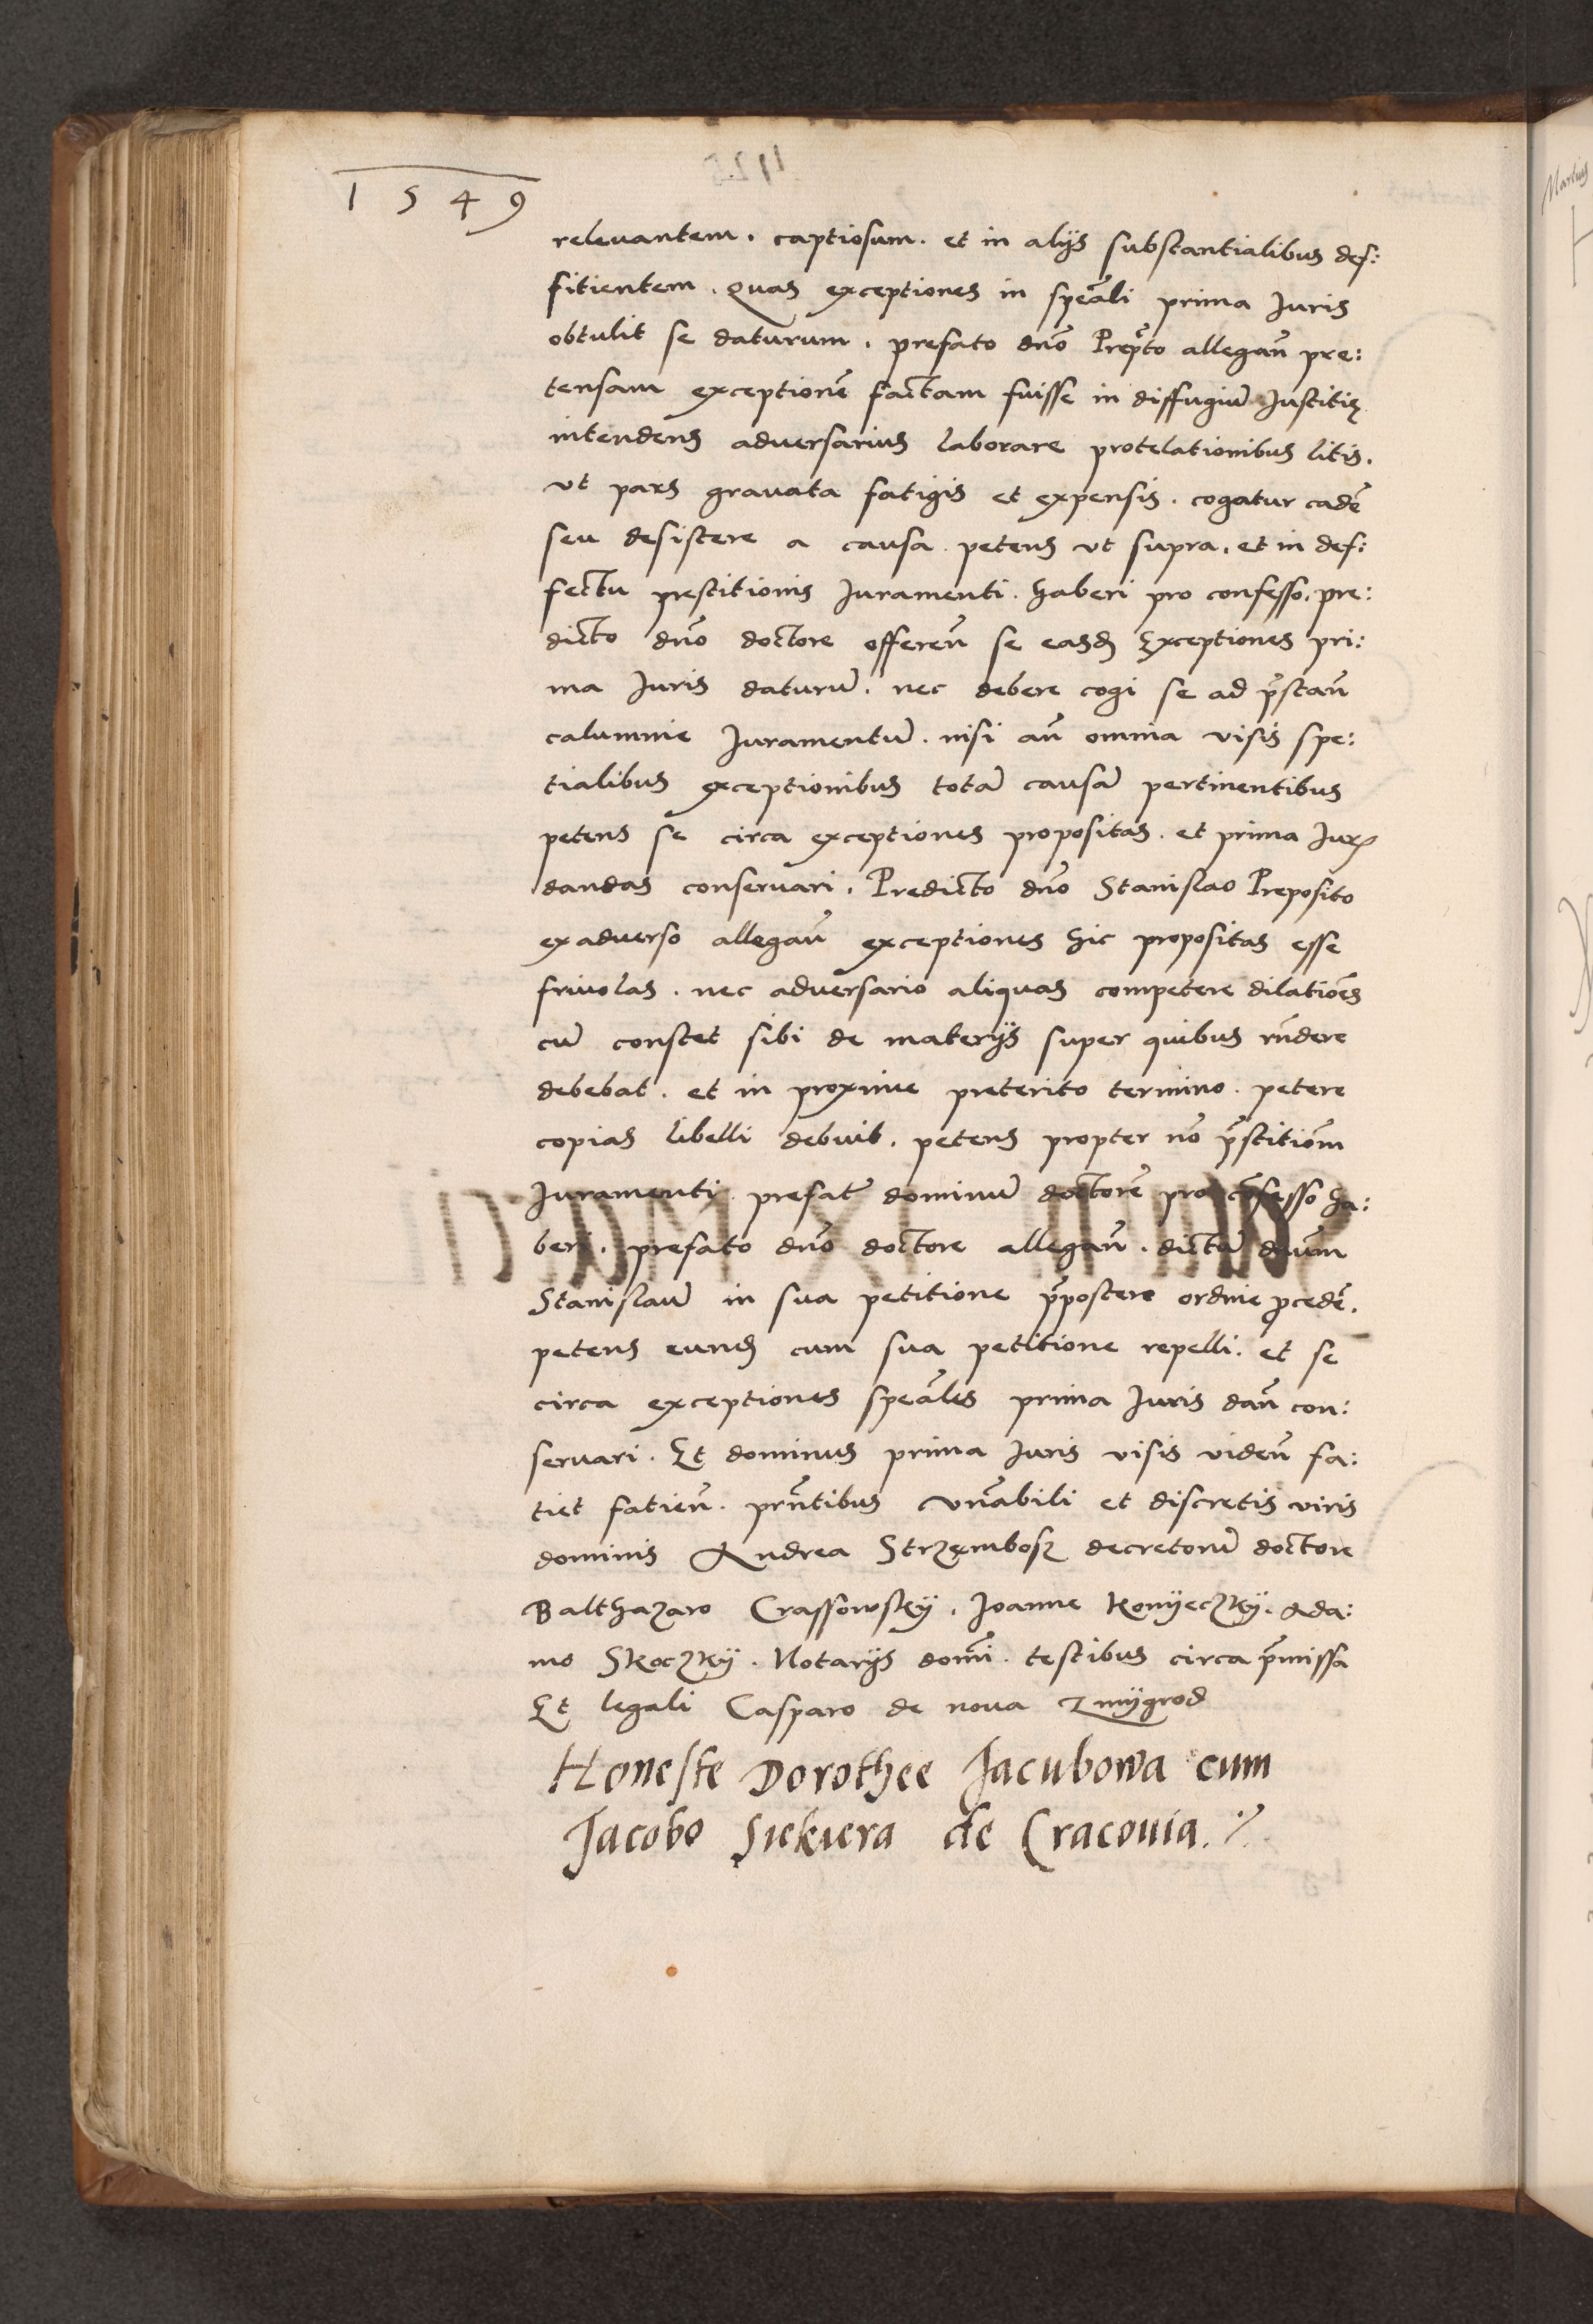 1549
relevantem. captiosum. et in alijs substantialibus def:
fitientem. Quas exceptiones in speciali prima Juris
obtulit se daturum. prefato dno Prepto allegan pre:
tensam exceptionem factam fuisse in diffugium Justitię
intendens adversarius laborare protelationibus litis.
ut pars gravata fatigis et expensis. cogatur cadere
seu desistere a causa petens ut supra. et in def:
fectu prestitionis Juramenti. haberi pro confesso. pre:
dicto dno doctore offeren se easdem Exceptiones pri:
ma Juris daturum. nec debere cogi se ad prestan
calumnie Juramentum. nisi an omnia visis spe:
tialibus exceptionibus totam causam pertinentibus
petens se circa exceptiones propositas. et prima Juris
dandas conservari. Predicto dno Stanislao Preposito
ex adverso allegan exceptiones hic propositas esse
frivolas. nec adversario aliquas competere dilationes
cum constet sibi de materijs super quibus rndere
debebat. et in proxime preterito termino. petere
copias libelli debuit. petens propter non prestitionem
Juramenti. prefatum dominum doctorem pro confesso ha:
beri. prefato dno doctore allegan. dictum dnum
Stanislaum in sua petitione prepostere ordine proceden.
petens eundem cum sua petitione repelli. et se
circa exceptiones speciales prima Juris dan con:
servari. Et dominus prima Juris visis viden fa:
tiet fatien. prntibus venerabili et discretis viris
dominis Andrea Strzembosz decretorum doctore
Balthazaro Crassowskÿ. Joanne Konÿeczkÿ. Ada:
mo Skoczkÿ. Notarijs domini. testibus circa premissa
Et legali Casparo de nova Zmÿgrod
Honeste Dorothee Jacubowa cum
Jacobo Siekiera de Cracovia.